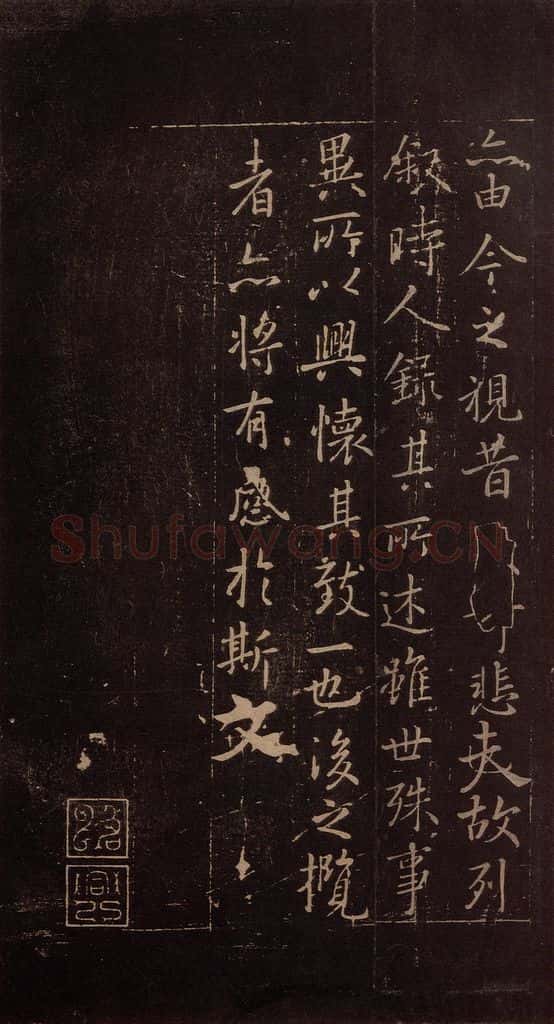 亦由今之視昔悲夫故列
敘時人錄其所述雖世殊事
異所以興懷其致一也後之攬
者亦將有感於斯文
Shufawang.CN